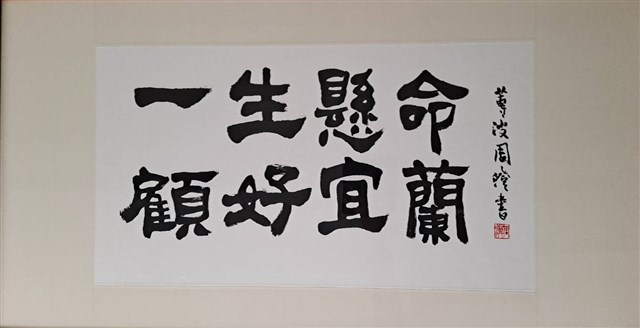 一生懸命
顧好宜蘭
蓴波周澄書